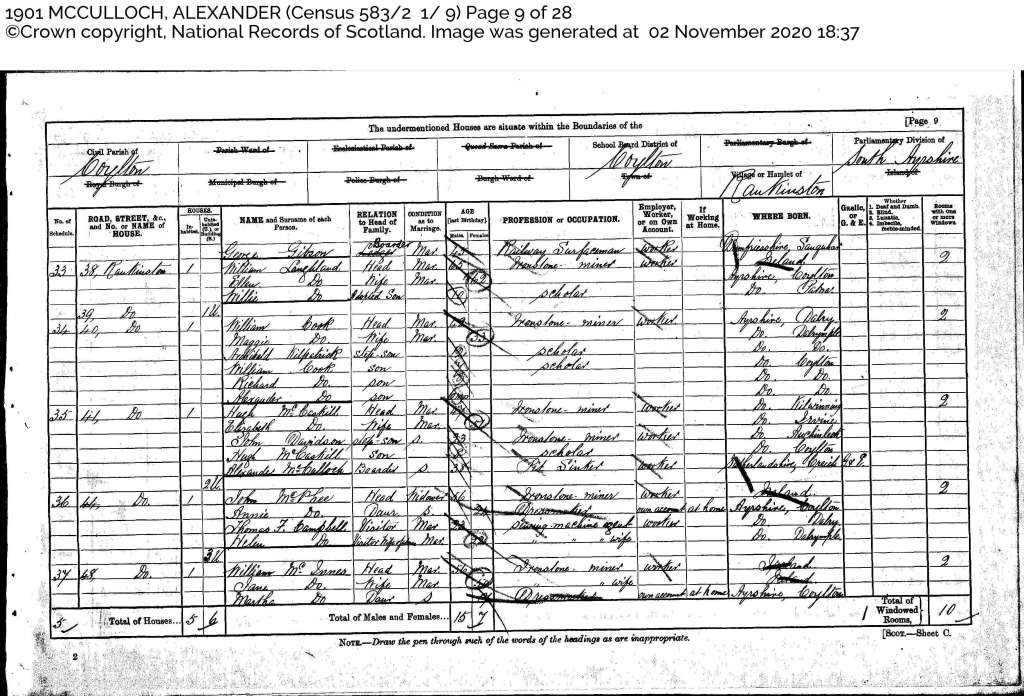 1901 MCCULLOCH, ALEXANDER (Census 583/2 1/ 9) Page 9 of 28
©Crown copyright, National Records of Scotland. Image was generated at 02 November 2020 18:37
[Page 9
The undermentioned Houses are situate within the Boundaries of the
Civil Parish of Coylton
Parish Ward of
Ecclesiastical Parish of
Quoad Sacra Parish of
School Board District of Coylton
Parliamentary Burgh of
Parliamentary Division of South Ayrshire
Royal Burgh of
Municipal Burgh of
Police Burgh of
Burgh Ward of
Town of
Village or Hamlet of Rankinston
Island of
No. of Schedule.
ROAD, STREET, &c., and No. or NAME of HOUSE.
HOUSES.
Inhabited
Uninhabited (U.) or Building (B.)
NAME and Surname of each Person.
RELATION to Head of Family.
CONDITION as to Marriage.
AGE [last Birthday].
Males.
Females.
PROFESSION or OCCUPATION.
Employer, Worker, or on Own Account.
If Working at Home.
WHERE BORN.
Gaelic, or G. & E.
Whether 1. Deaf and Dumb. 2. Blind. 3. Lunatic. 4. Imbecile, feeble-minded.
Rooms with one or more windows.
George Gibson Boarder Mar. Railway Surfaceman worker Dumfriesshire, Sanquhar
33 38, Rankinston 1 William Head Mar. Ironstone-miner worker Ireland 2
Ellen Do Wife Mar. Ayrshire, Coylton
Willie Do Adopted Son scholar Do. Patna
39, Do 1U.
34 40, Do 1 William Cook Head Mar. Ironstone-miner worker Ayrshire, Dalry 2
Maggie Do. Wife Mar. 33 Do. Dalrymple
Archibald Kilpatrick step-son scholar Do. Do.
William Cook son scholar Do. Coylton
Richard Do. son Do. Do.
Alexander Do. son Do. Do.
35 41, Do 1 Hugh McCaskill Head Mar. Ironstone-miner worker Do. Kilwinning 2
Elizabeth Do. Wife Mar. Do. Irvine
John Davidson step-son s. 23 Ironstone-miner worker Do. Auchinleck
Hugh McCaskill son scholar Do. Coylton
Alexander McCulloch Boarder s Pit Sinker worker Sutherlandshire, Creich G & E.
2U.
36 44, Do. 1 John McPhee Head Widower Ironstone-miner worker Ireland 2
Annie Do. Daur s Dressmaker own account at home Ayrshire, Coylton
Thomas F. Campbell Visitor Mar. sewing-machine agent worker Do. Dalry
Helen Do Visitor Mar. " " " wife Do. Dalrymple
3U.
37 48, Do. 1 William McInnes Head Mar. Ironstone-miner worker Ireland 2
Jane Do. Wife Mar. " " wife Ireland
Martha Do. Daur s Dressmaker own account at home Ayrshire, Coylton
5 Total of Houses... 5 6 Total of Males and Females... 15 7 1 Total of Windowed Rooms, 10
NOTE.—Draw the pen through such of the words of the headings as are inappropriate.
[SCOT.—Sheet C.
2